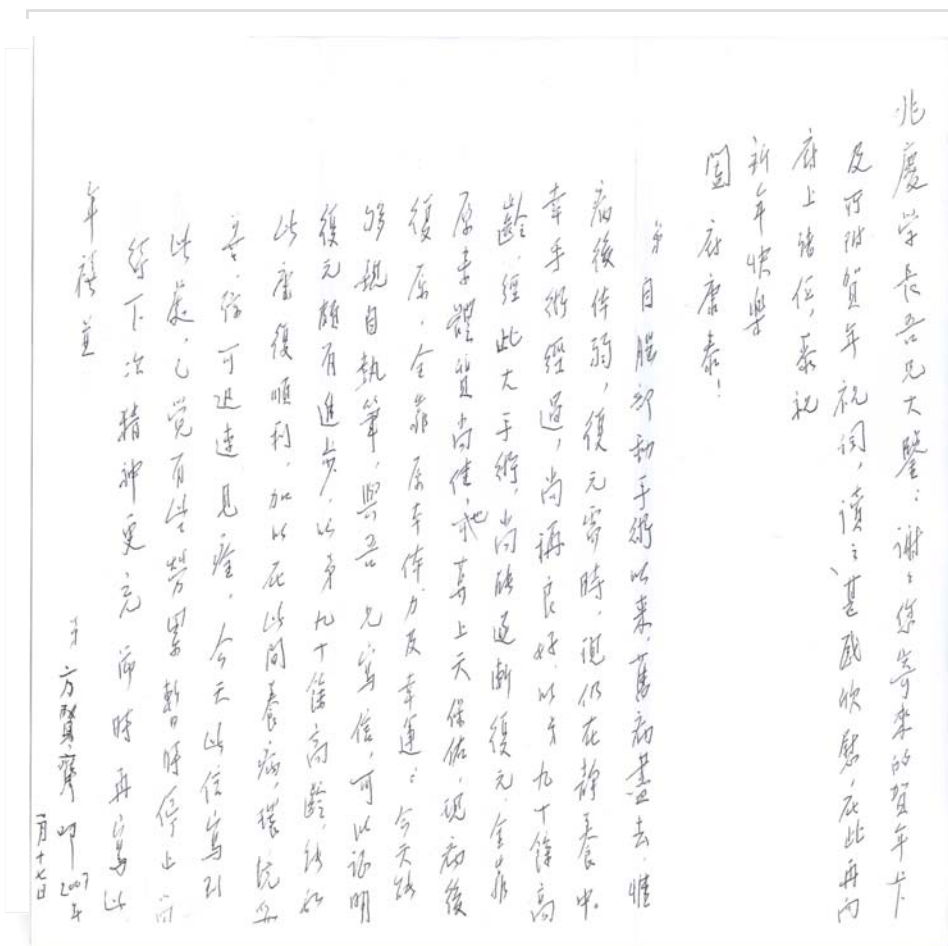 兆慶学長吾兄大鑒：谢谢您寄来的贺年卡
及所附贺年祝词，读之甚感欣慰，在此再向
府上诸位，恭祝
新年快樂
闔府康泰！
弟自腿部動手術以来，舊病盡去，惟
病後体弱，復元需時，現仍在静養中。
幸手術經過，尚称良好，以弟九十餘高
齡，經此大手術，尚能逐漸復元，全靠
原来體質尚佳，或真上天保佑，現病後
復原，全靠原本体力及幸運；今天能
够親自執筆，與吾兄寫信，可以证明
復元頗有進步，以弟九十餘高齡，能如
此康復順利，加以在此間養病，環境安
善，你可迅速見痊，今天此信寫到
此處，已覺有些勞累，暫时停止，尚
待下次精神更充沛時再寫，此
年禧并
弟方賢齊叩 2007年
一月十七日